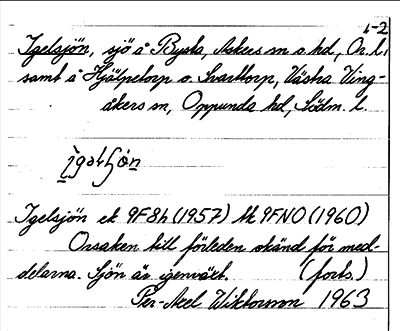 1-2
Igelsjön, sjö å Bysta, Askers sn o hd, Ör. l.
samt å Hjälpetorp o. Svarttorp, Västra Ving-
åkers sn, Oppunda hd, Södm. l.
Igelsjön ek 9F8h (1957) hk 9FNO (1960)
Orsaken till förleden okänd för med-
delarna. Sjön är igenväxt. (forts.)
Per-Axel Wiktorsson 1963